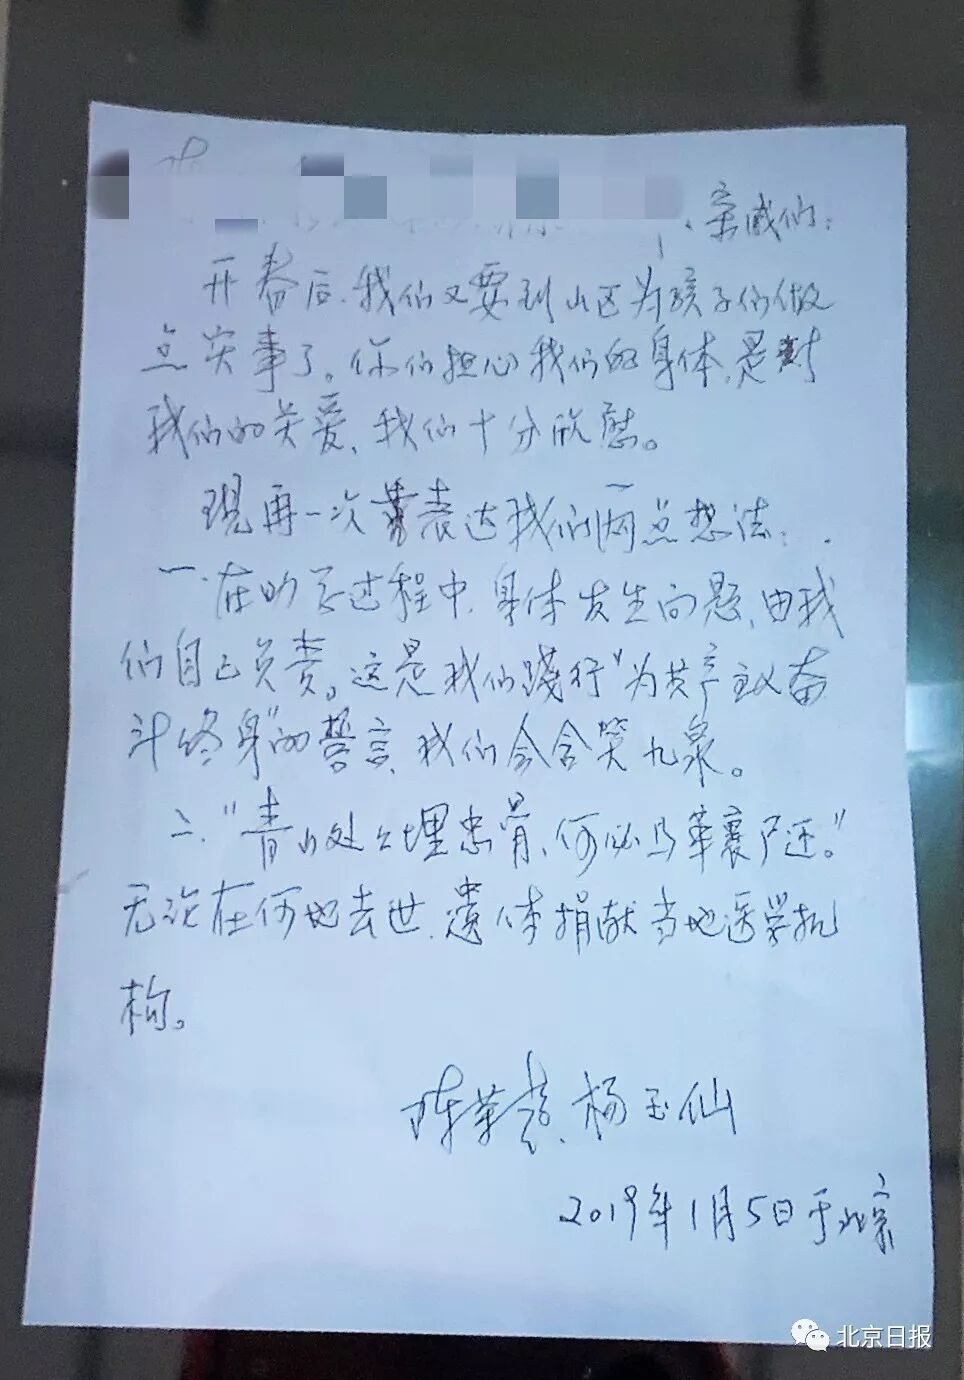 、亲戚们：
开春后，我们又要到山区为孩子们做
点实事了。你们担心我们的身体，是对
我们的关爱，我们十分欣慰。
现再一次表达我们两点想法：
一、在助学过程中，身体发生问题，由我
们自己负责。这是我们践行“为共产主义奋
斗终身”的誓言，我们会含笑九泉。
二、“青山处处埋忠骨，何必马革裹尸还。”
无论在何地去世，遗体捐献当地医学机
构。
陈荣 、杨玉仙
2019年1月5日于北京
北京日报